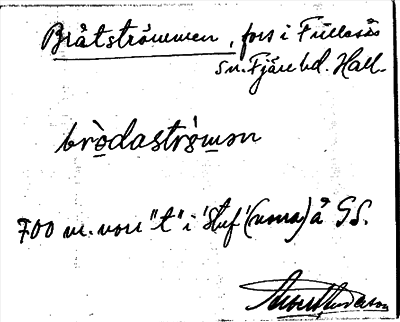 Bråtströmmen, fors i Fullasås
sn. Fjäre hd. Hall.
brödaströmən
700 m. norr "t" i 'Stuf' (norra) å GS.